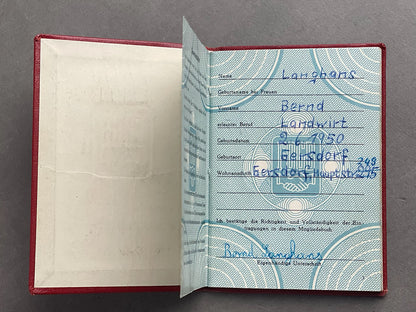 Name Langhans
Geburtsname bei Frauen
Vorname Bernd
erlernter Beruf Landwirt
Geburtsdatum 2.6.1950
Geburtsort Gersdorf
Wohnanschrift Gersdorf, Hauptstr. 215
249
Ich bestätige die Richtigkeit und Vollständigkeit der Ein-
tragungen in diesem Mitgliedsbuch
Bernd Langhans
Eigenhändige Unterschrift